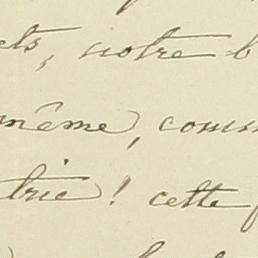 ets, notre b
même, comm
trie! cette